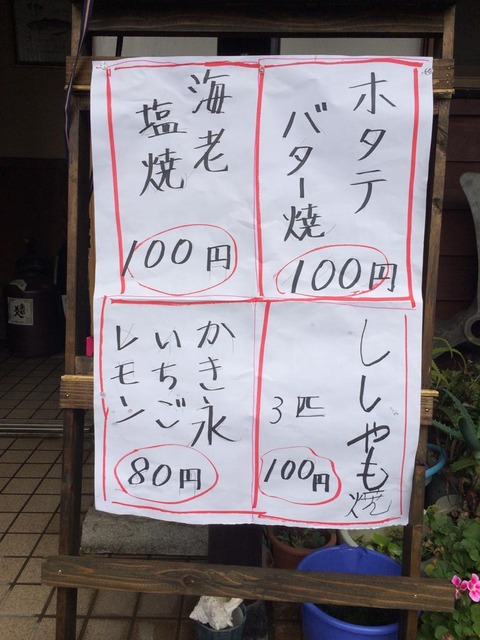 ホタテ
バター焼
100円
海老
塩焼
100円
ししゃも焼
3匹
100円
かき氷
いちご
レモン
80円